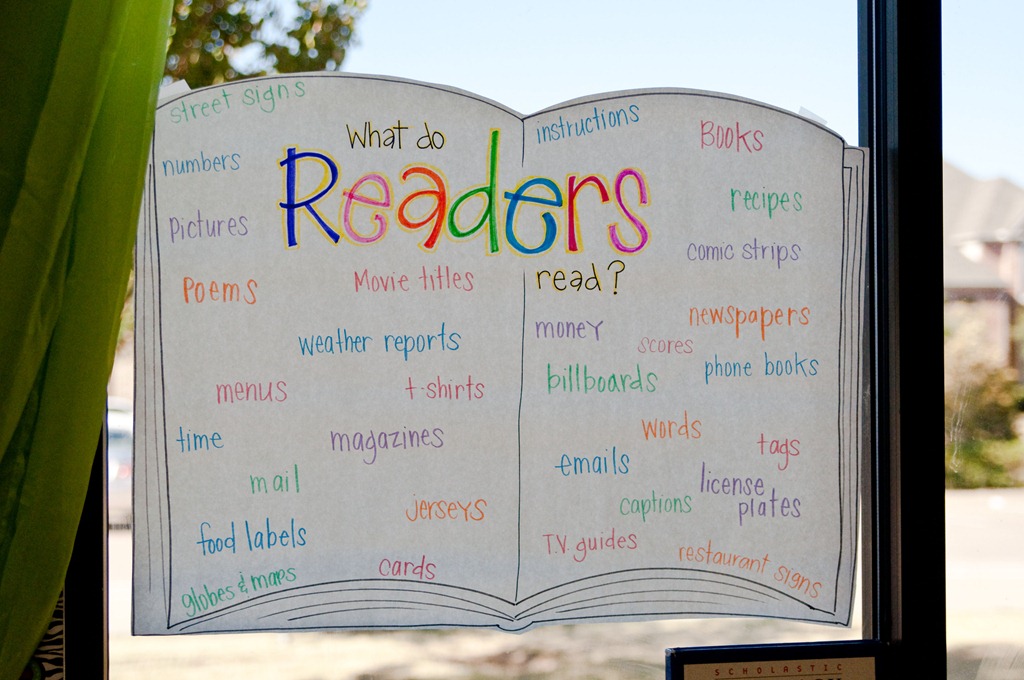 street signs
What do
Readers
read?
numbers
pictures
Poems
Movie titles
weather reports
menus
t-shirts
time
magazines
mail
jerseys
food labels
cards
globes & maps
instructions
Books
recipes
comic strips
money
newspapers
scores
phone books
billboards
words
tags
emails
license
plates
captions
T.V. guides
restaurant signs
SCHOLASTIC